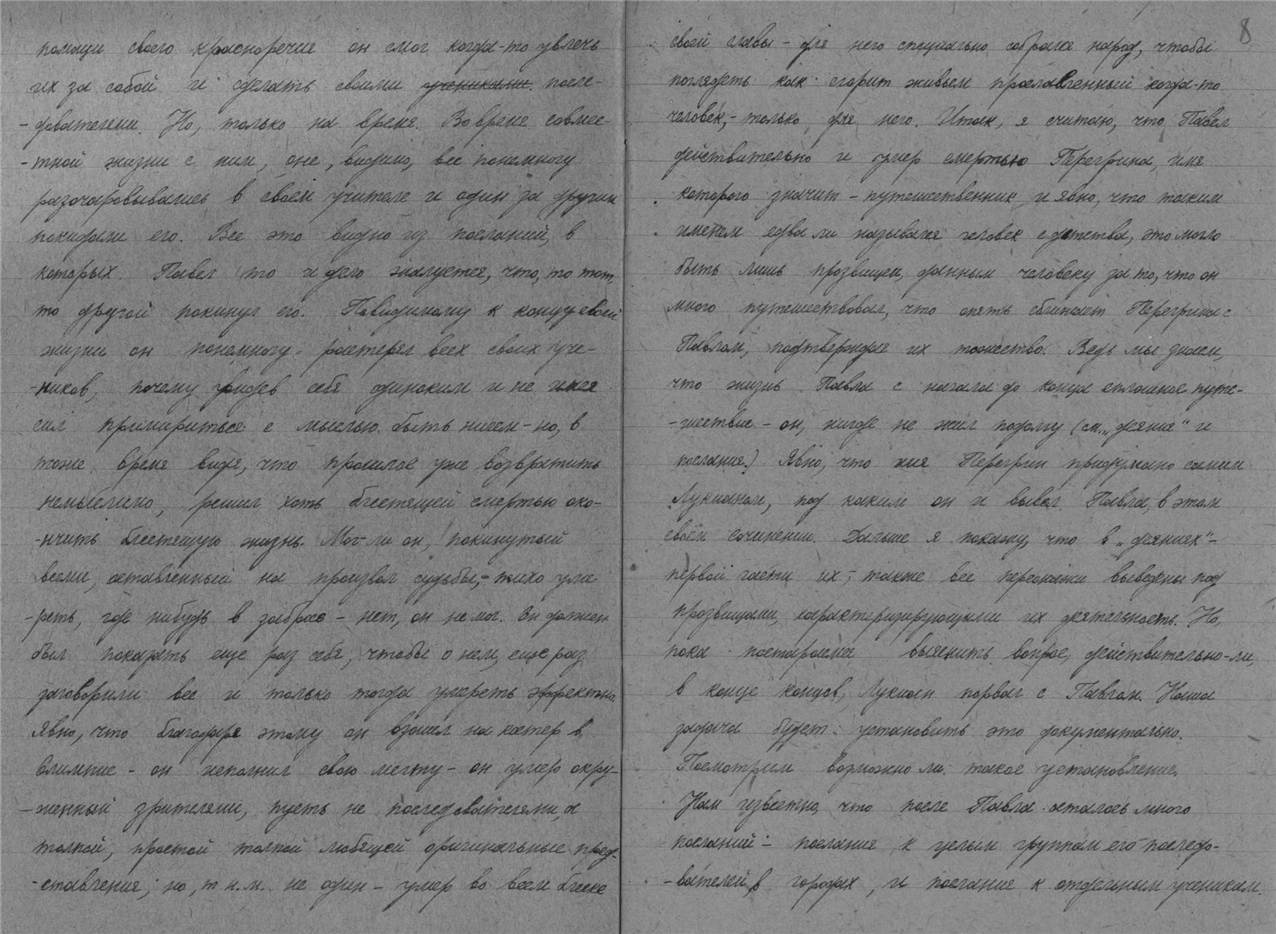 помощи своего красноречия он смог когда-то увлечь
их за собой и сделать своими учениками после-
-дователями. Но, только на время. Во время совме-
-тной жизни с ним, они, видимо, все понемногу
разочаровывались в своем учителе и один за другим
покидали его. Все это видно из посланий, в
которых Павел то и дело жалуется, что, то тот,
то другой покинул его. Повидимому к концу своей
жизни он понемногу растерял всех своих уче-
-ников, почему увидев себя одиноким и не имея
сил примириться с мыслью быть ничем - но, в
тоже время видя, что прошлое уже возвратить
немыслимо, решил хоть блестящей смертью око-
-нчить блестящую жизнь. Мог-ли он, покинутый
всеми, оставленный на произвол судьбы, - тихо уме-
-реть, где нибудь в забросе - нет, он не мог. Он должен
был показать еще раз себя, чтобы о нем, еще раз
заговорили все и только тогда умереть эффектно.
Явно, что благодаря этому он взошел на костер в
Олимпие - он исполнил свою мечту - он умер окру-
-женный зрителями, пусть не последователями, а
толпой, простой толпой любящей оригинальные пред-
-ставления; но, т.н.м. не один - умер во всем блеске
8
своей славы - для него специально собрался народ, чтобы
поглядеть как сгорит живьем прославленный когда-то
человек, - только для него. Итак, я считаю, что Павел
действительно и умер смертью Перегрина, имя
которого значит - путешественник, и явно, что таким
именем едва ли назывался человек с детства, это могло
быть лишь прозвищем, данным человеку за то, что он
много путешествовал, что опять сближает Перегрина с
Павлом, подтверждая их тожество. Ведь мы знаем,
что жизнь Павла с начала до конца сплошное путе-
-шествие - он, нигде не жил подолгу (см. „деяния" и
послания.) Явно, что имя Перегрин придумано самим
Лукианом, под каким он и вывел Павла, в этом
своём сочинении. Дальше я покажу, что в „деяниях"-
первой части их, - также все персонажи выведены под
прозвищами, характеризирующими их деятельность. Но,
пока постараемся выяснить вопрос, действительно-ли,
в конце концов, Лукиан порвал с Павлом. Наша
задача будет: установить это документально.
Посмотрим возможно ли такое установление.
Нам известно, что после Павла осталось много
посланий - послания к целым группам его последо-
-вателей в городах, и послания к отдельным ученикам.